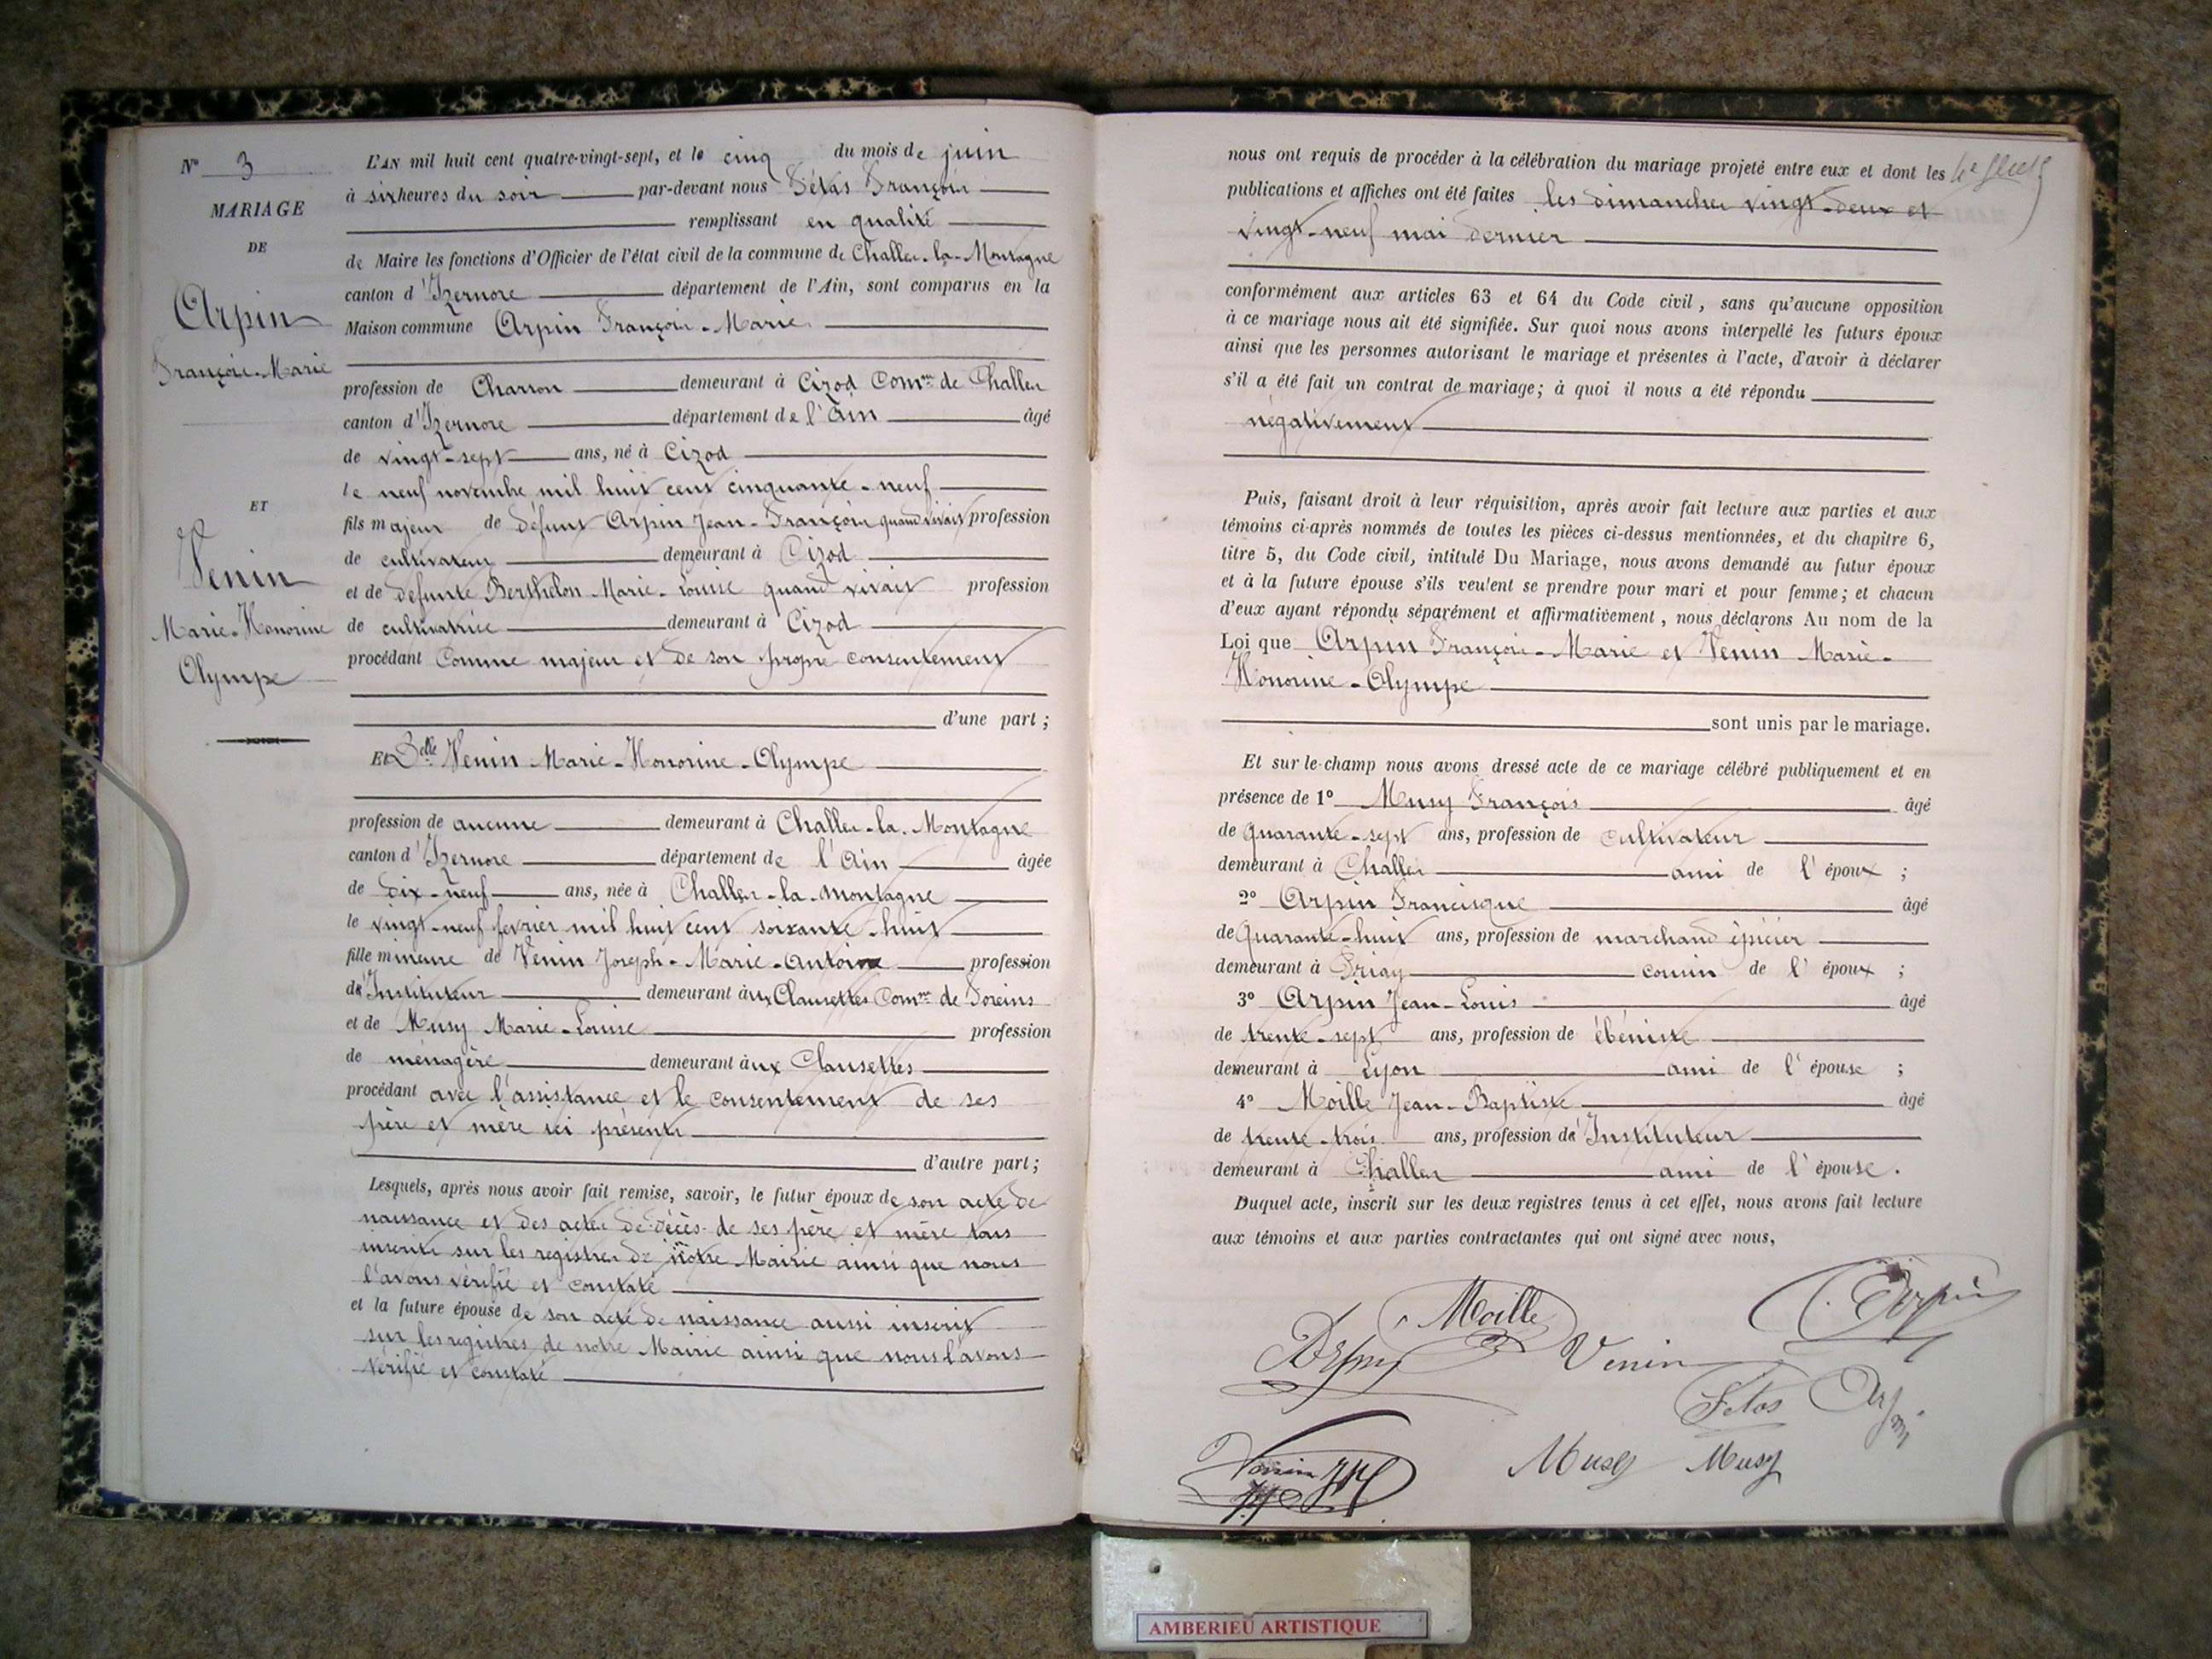 N° 3
MARIAGE
DE
Arpin
François-Marie
ET
Venin
Marie-Honorine
Olympe
L'AN mil huit cent quatre-vingt-sept, et le cinq du mois de juin
à six heures du soir par-devant nous Fétas François
remplissant en qualité
de Maire les fonctions d'Officier de l'état civil de la commune de Challes-la-Montagne
canton d'Izernore département de l'Ain, sont comparus en la
Maison commune Arpin François-Marie
profession de Charron demeurant à Cizod Comne de Challes
canton d'Izernore département de l'Ain âgé
de vingt-sept ans, né à Cizod
le neuf novembre mil huit cent cinquante-neuf
fils majeur de défunt Arpin Jean-François quand vivait profession
de cultivateur demeurant à Cizod
et de défunte Berthelon Marie-Louise quand vivait profession
de cultivatrice demeurant à Cizod
procédant Comme majeur et de son propre consentement
d'une part ;
Et Delle Venin Marie-Honorine-Olympe
profession de aucune demeurant à Challes-la-Montagne
canton d'Izernore département de l'Ain âgée
de dix-neuf ans, née à Challes-la-Montagne
le vingt-neuf fevrier mil huit cent soixante-huit
fille mineure de Venin Joseph-Marie-Antoine profession
d'Instituteur demeurant aux Clausettes Comne de Foreins
et de Musy Marie-Louise profession
de ménagère demeurant aux Clausettes
procédant avec l'assistance et le consentement de ses
père et mère ici présents
d'autre part ;
Lesquels, après nous avoir fait remise, savoir, le futur époux de son acte de
naissance et des actes de décès de ses père et mère tous
inscrits sur les registres de notre Mairie ainsi que nous
l'avons vérifié et constaté
et la future épouse de son acte de naissance aussi inscrit
sur les registres de notre Mairie ainsi que nous l'avons
vérifié et constaté
nous ont requis de procéder à la célébration du mariage projeté entre eux et dont les
publications et affiches ont été faites les dimanches vingt-deux et
vingt-neuf mai dernier
conformément aux articles 63 et 64 du Code civil, sans qu'aucune opposition
à ce mariage nous ait été signifiée. Sur quoi nous avons interpellé les futurs époux
ainsi que les personnes autorisant le mariage et présentes à l'acte, d'avoir à déclarer
s'il a été fait un contrat de mariage; à quoi il nous a été répondu
négativement
Puis, faisant droit à leur réquisition, après avoir fait lecture aux parties et aux
témoins ci-après nommés de toutes les pièces ci-dessus mentionnées, et du chapitre 6,
titre 5, du Code civil, intitulé Du Mariage, nous avons demandé au futur époux
et à la future épouse s'ils veulent se prendre pour mari et pour femme; et chacun
d'eux ayant répondu séparément et affirmativement, nous déclarons Au nom de la
Loi que Arpin François-Marie et Venin Marie-
Honorine-Olympe
sont unis par le mariage.
Et sur-le-champ nous avons dressé acte de ce mariage célébré publiquement et en
présence de 1° Musy François âgé
de quarante-sept ans, profession de cultivateur
demeurant à Challes ami de l'époux ;
2° Arpin Francisque âgé
de quarante-huit ans, profession de marchand épicier
demeurant à Priay cousin de l'époux ;
3° Arpin Jean-Louis âgé
de trente-sept ans, profession de ébéniste
demeurant à Lyon ami de l'épouse ;
4° Moille Jean-Baptiste âgé
de trente-trois ans, profession d'Instituteur
demeurant à Challes ami de l'épouse.
Duquel acte, inscrit sur les deux registres tenus à cet effet, nous avons fait lecture
aux témoins et aux parties contractantes qui ont signé avec nous,
Moille
Arpin
Arpin Venin
Fétas Arpin
Venin
Musy Musy
AMBERIEU ARTISTIQUE